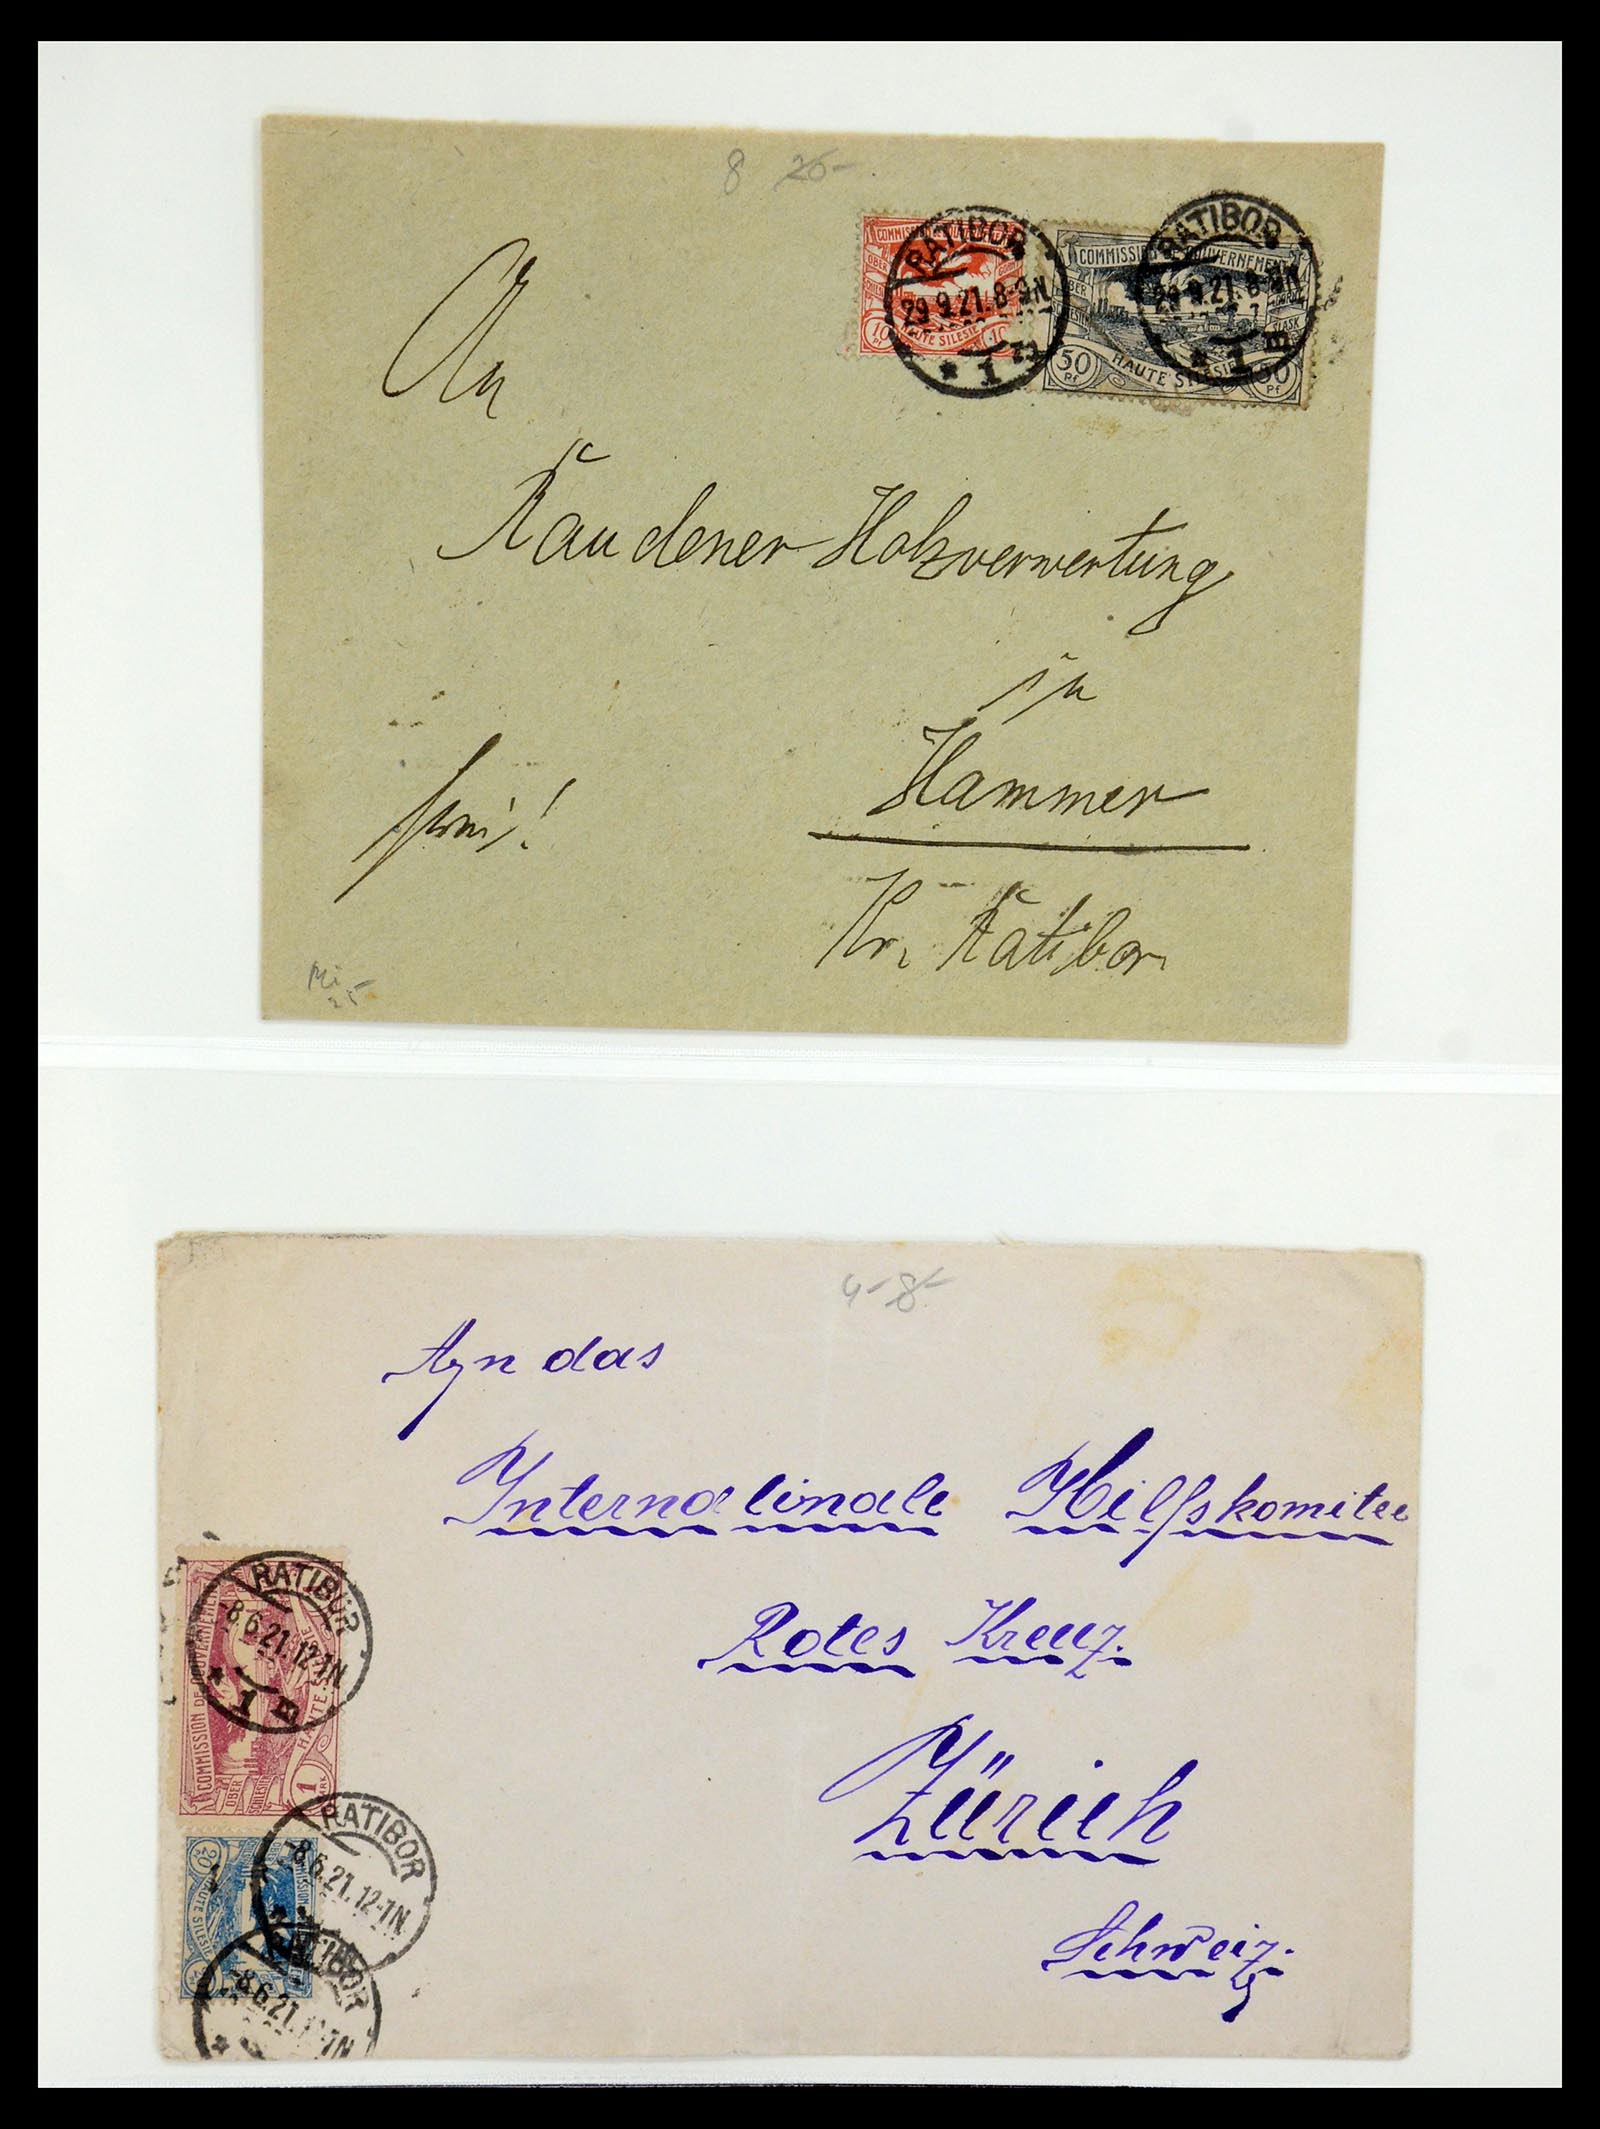 8 26-
COMMISSION
OBER
10 Pf
HAUTE SILESIE
RATIBOR
29.9.21.8-9N
* 1
COMMISSION DE GOUVERNEMENT
OBER
GORNY
SLASK
50 Pf
HAUTE SILESIE
50 Pf
RATIBOR
29.9.21.8-9N
* 1 B
An
Raudener Holzverwertung
in
Hammer
Kr. Ratibor
frei!
Mi
25-
4- 8-
An das
Internationale Hilfskomitee
Rotes Kreuz.
Zürich
Schweiz.
COMMISSION DE GOUVERNEMENT
OBER
SCHLESIEN
HAUTE SILESIE
1 MARK
RATIBOR
-8.6.21.12-1N
* 1 B
20
HAUTE SILESIE
COMMISSION
RATIBOR
-8.6.21.12-1N
RATIBOR
-8.6.21.12-1N
*